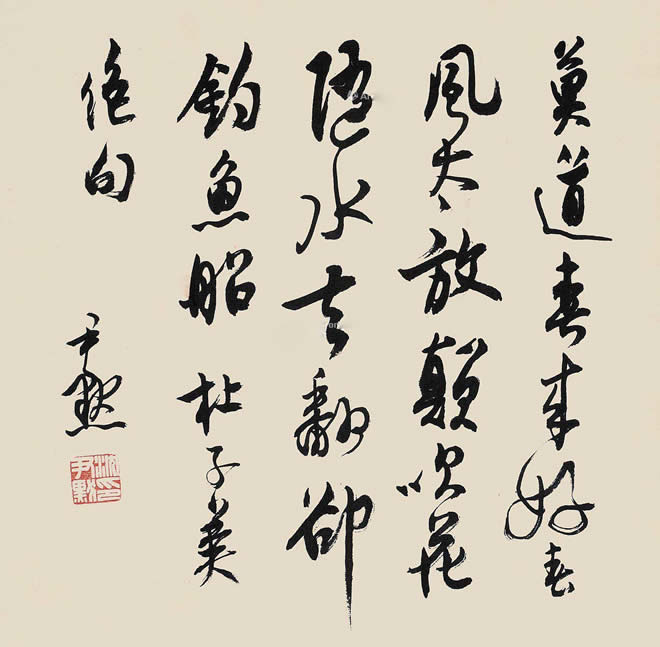 莫道春来好春
風太放顛吹花
随水去翻卻
釣魚船 杜子美
絕句
尹默
沈尹默印